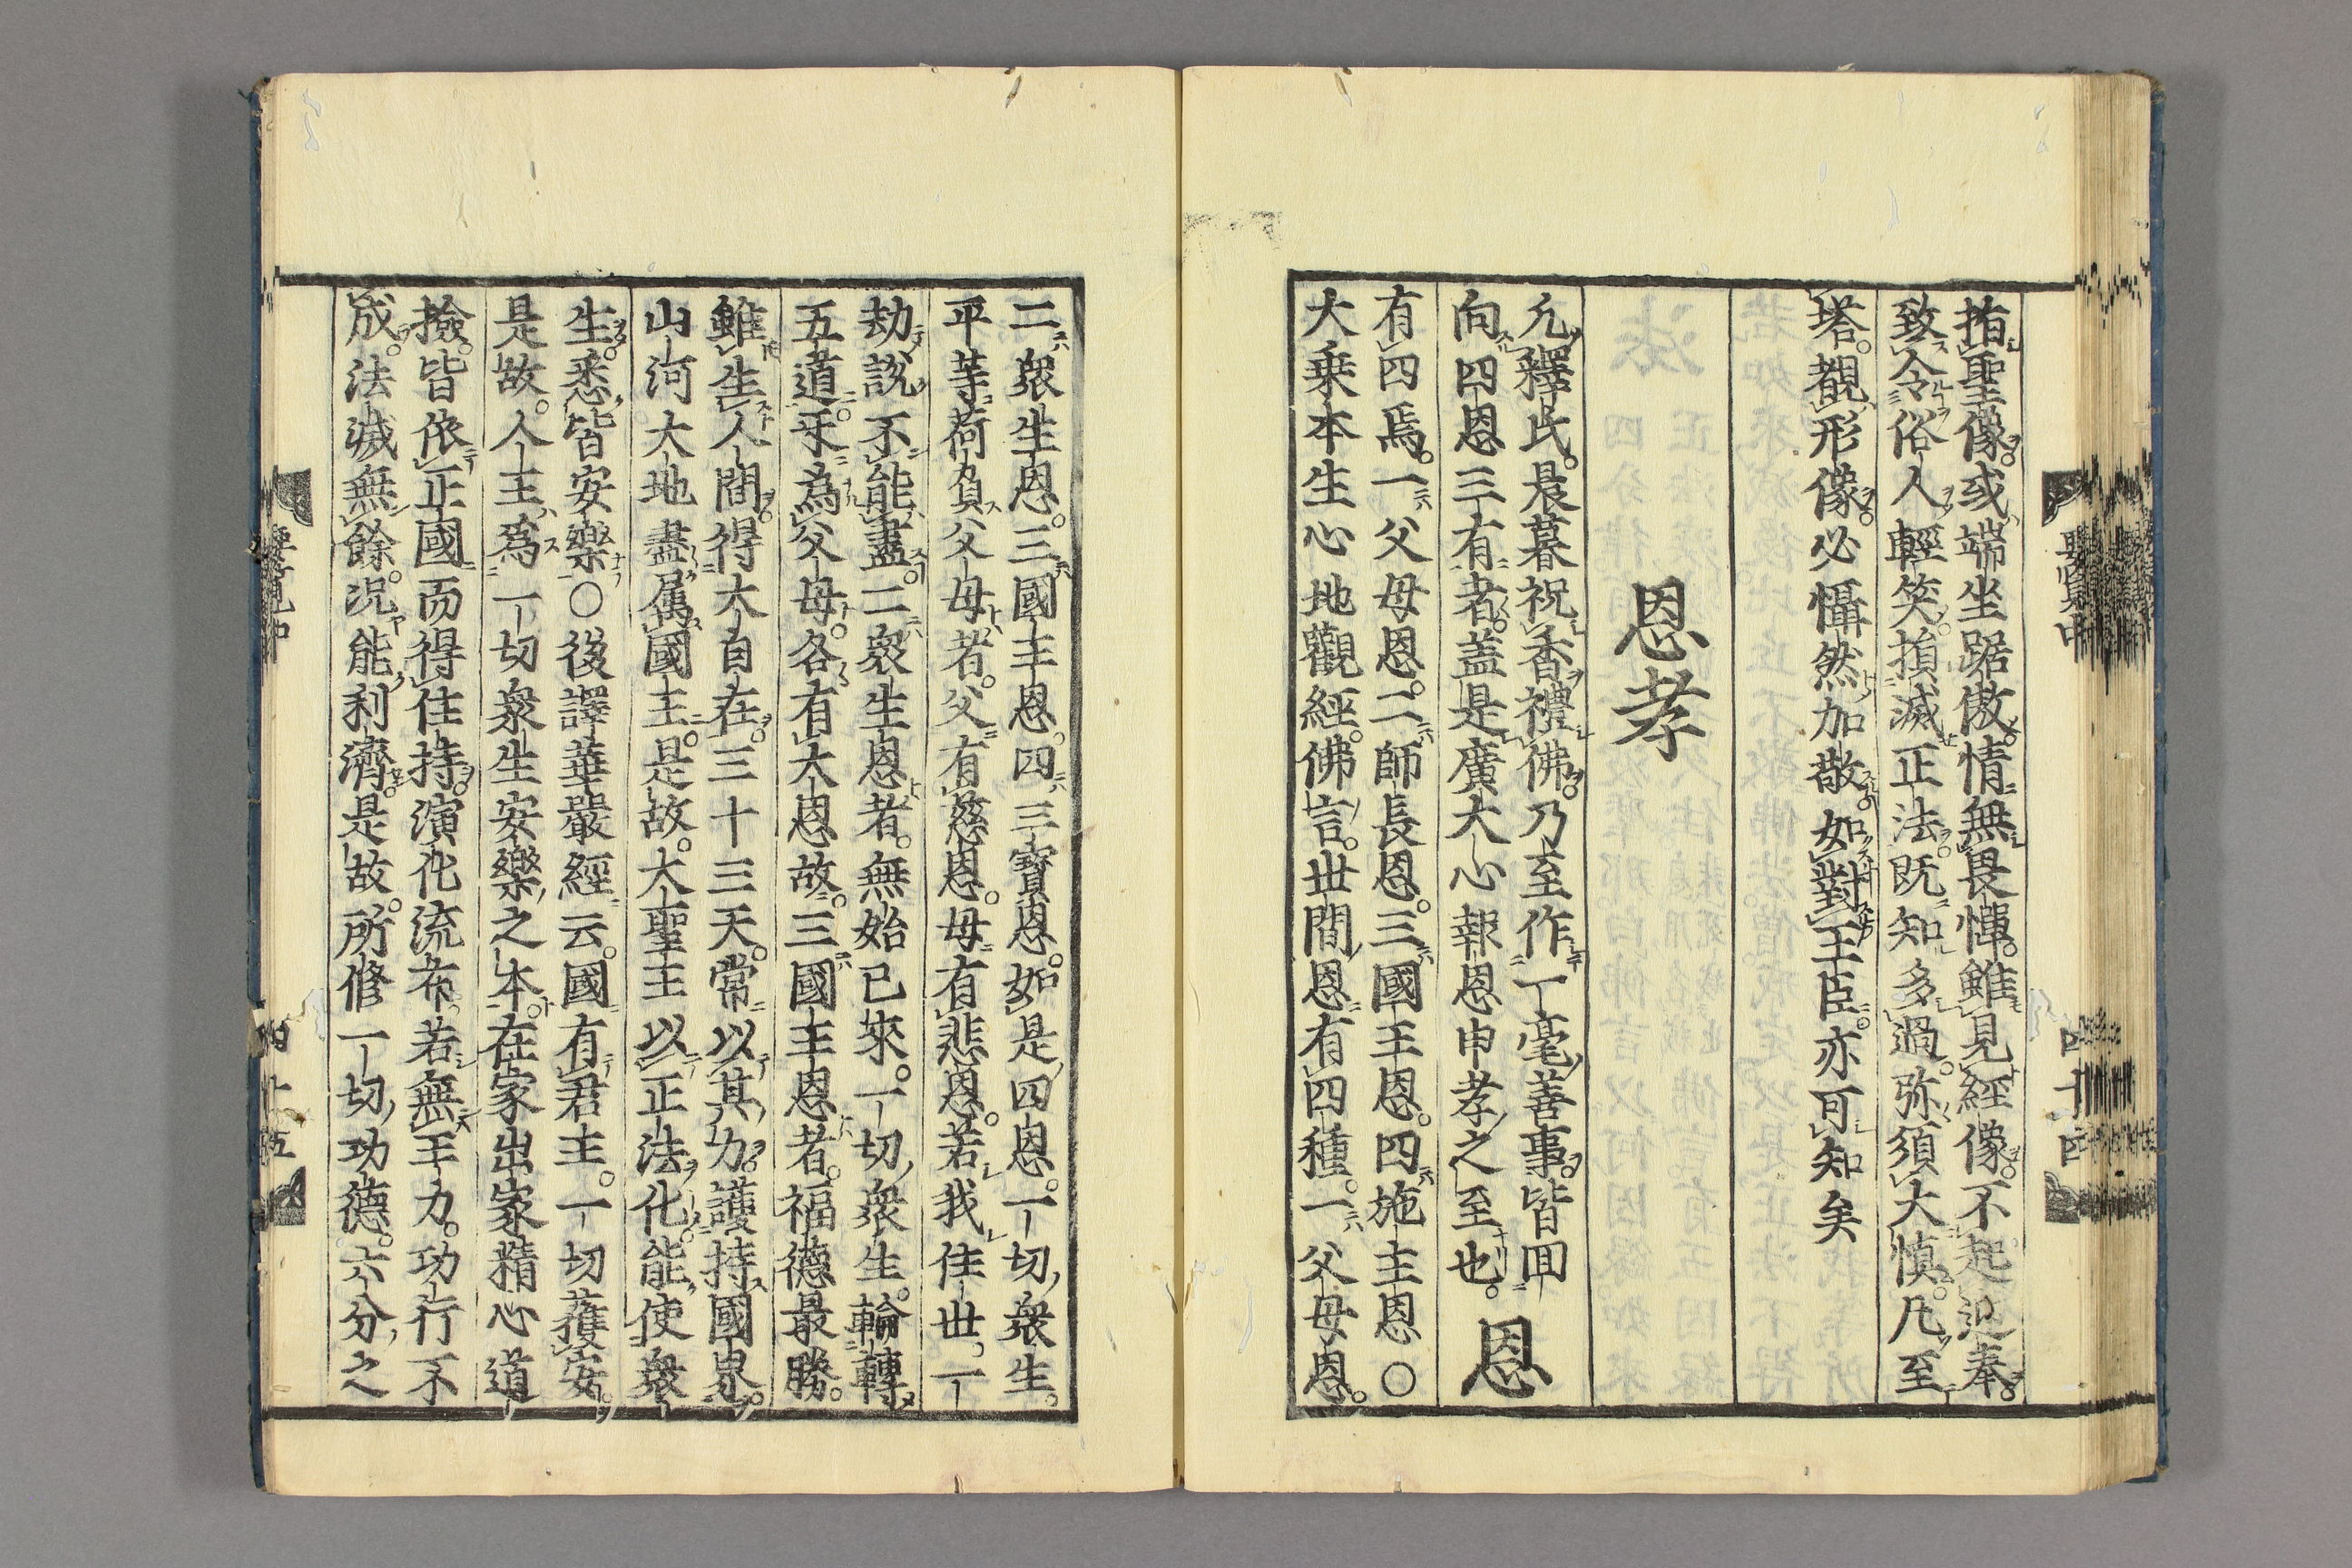 指聖像或端坐踞傲情無畏憚。雖見經像。不起迎奉。
致令俗人輕笑。損滅正法。既知多過。弥須大慎。凡至
塔。覩形像。必懾然加敬。如對王臣。亦可知矣
恩孝
凢釋氏。晨暮祝香禮佛。乃至作一毫善事。皆囬
向四恩三有者。盖是廣大心報恩申孝之至也。恩
有四焉。一父母恩。二師長恩。三國王恩。四施主恩〇
大乗本生心地觀經。佛言。世間恩有四種。一父母恩。
二衆生恩。三國主恩。四三寶恩。如是四恩。一切衆生。
平等荷負父母者。父有慈恩。母有悲恩。若我住世一
劫說不能盡。二衆生恩者。無始已來。一切衆生。輪轉
五道。互為父母。各有大恩故。三國主恩者。福德最勝。
雖生人間。得大自在。三十三天。常以其力。護持國界。
山河大地盡属國主。是故。大聖主以正法化。能使衆
生。悉皆安樂〇後譯華嚴經云。國有君主。一切獲安。
是故。人主爲一切衆生安樂之本。在家出家精心道
撿。皆依正國而得住持。演化流布。若無王力。功行不
成。法滅無餘。况能利濟。是故。所修一切功德。六分之
要覧中
四十四
要覧中
四十五